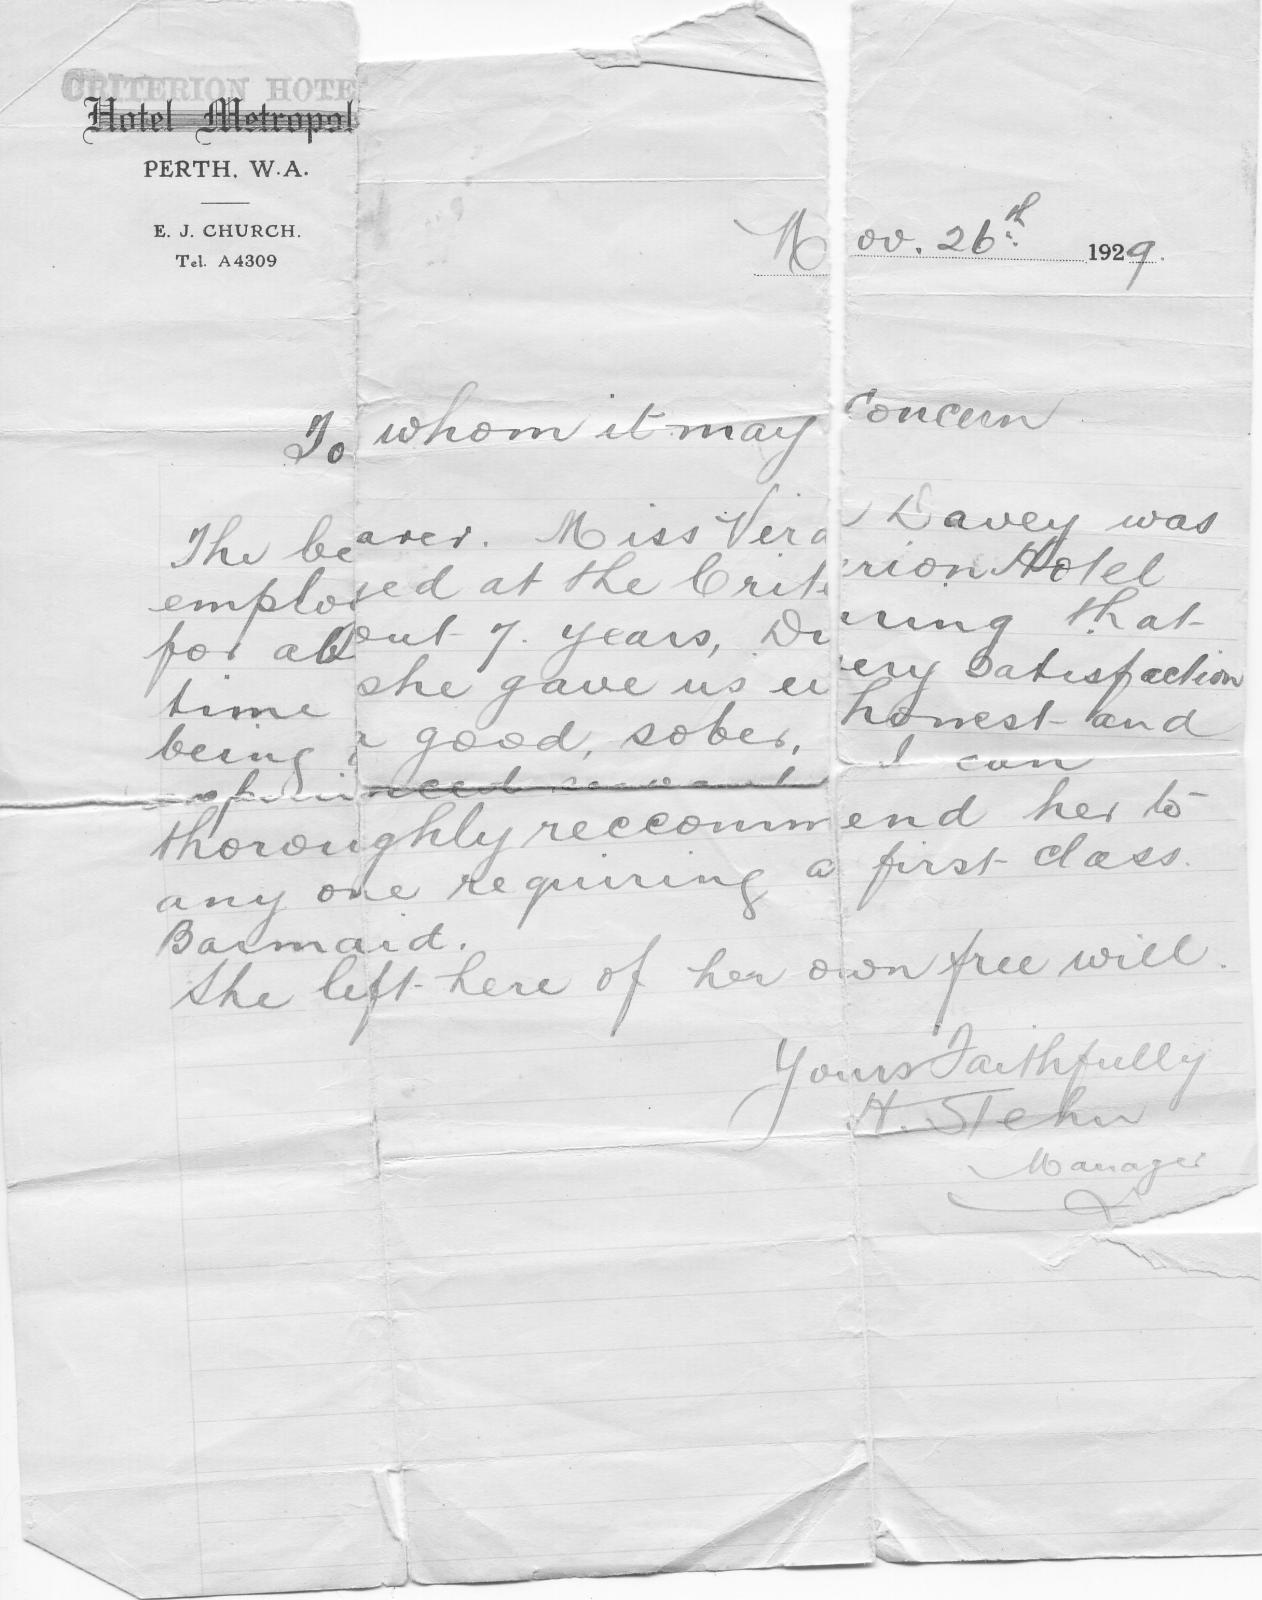 CRITERION HOTE
Hotel Metropol
PERTH, W.A.
E. J. CHURCH.
Tel. A4309
Nov. 26th 1929.
To whom it may concern
The bearer. Miss Vera Davey was
employed at the Criterion Hotel
for about 7. years, During that
time she gave us every satisfaction
being a good, sober, honest and
experienced servant I can
thoroughly reccommend her to
any one requiring a first class.
Barmaid.
She left here of her own free will.
Yours Faithfully
H. Stehn
Manager